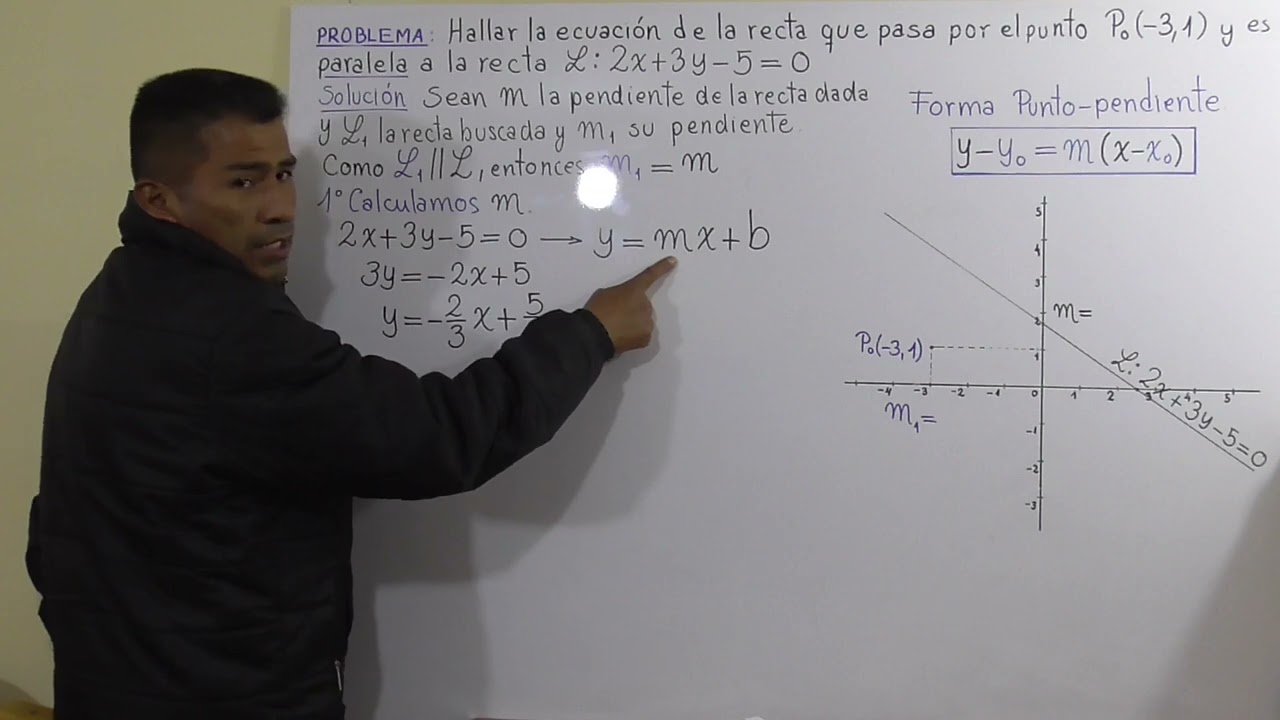 PROBLEMA: Hallar la ecuación de la recta que pasa por el punto P₀(-3,1) y es
paralela a la recta ℒ: 2x+3y-5=0
Solución Sean m la pendiente de la recta dada
y ℒ₁ la recta buscada y m₁ su pendiente.
Como ℒ₁ // ℒ, entonces m₁ = m
1° Calculamos m.
2x+3y-5=0 → y = mx+b
3y=-2x+5
y=-2/3 x+5
Forma Punto-pendiente
y-y₀=m(x-x₀)
5
4
3
2
1
m=
P₀(-3,1)
-4 -3 -2 -1 0 1 2 3 4 5
m₁=
-1
-2
-3
ℒ: 2x+3y-5=0